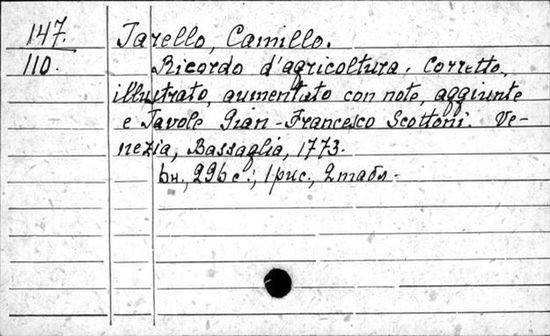 147.
110.
Tarello, Camillo.
Ricordo d'agricoltura. Corretto,
illustrato, aumentato con note, aggiunte
e Tavole Gian-Francesco Scottoni. Ve-
nezia, Bassaglia, 1773.
6н., 296 с.; 1 рис., 2 табл.